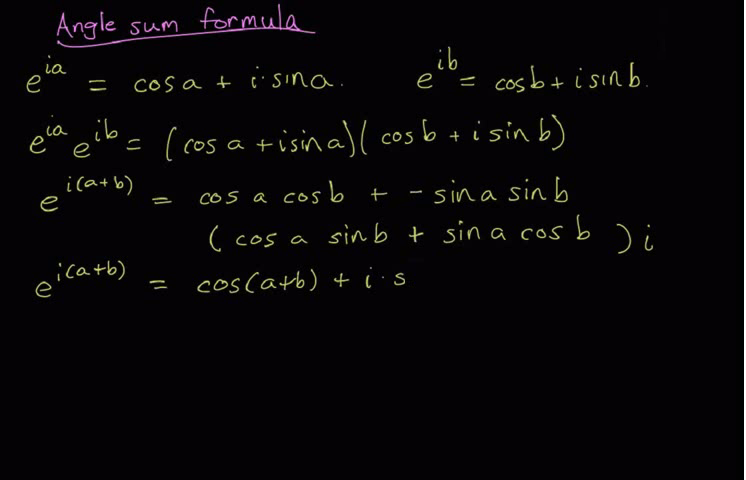 Angle sum formula
e^{ia} = cos a + i · sin a.   e^{ib} = cos b + i sin b.
e^{ia} e^{ib} = (cos a + i sin a)(cos b + i sin b)
e^{i(a+b)} = cos a cos b + - sin a sin b
(cos a sin b + sin a cos b) i
e^{i(a+b)} = cos(a+b) + i · s